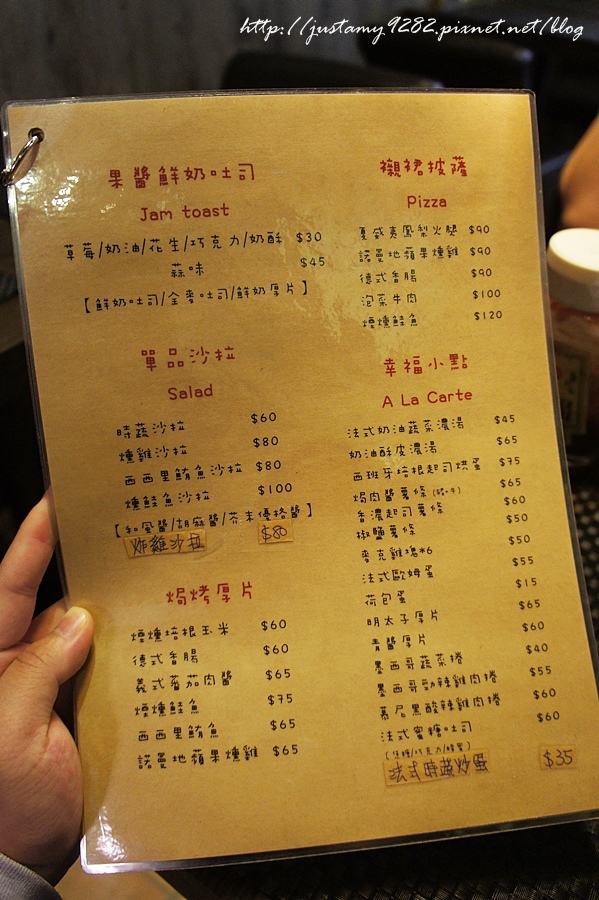 http://justamy9282.pixnet.net/blog
果醬鮮奶吐司
Jam toast
草莓/奶油/花生/巧克力/奶酥 $30
蒜味 $45
【鮮奶吐司/全麥吐司/鮮奶厚片】
單品沙拉
Salad
時蔬沙拉 $60
燻雞沙拉 $80
西西里鮪魚沙拉 $80
燻鮭魚沙拉 $100
【和風醬/胡麻醬/芥末優格醬】
炸雞沙拉 $80
焗烤厚片
煙燻培根玉米 $60
德式香腸 $60
義式蕃茄肉醬 $65
煙燻鮭魚 $75
西西里鮪魚 $65
諾曼地蘋果燻雞 $65
襯裙披薩
Pizza
夏威夷鳳梨火腿 $90
諾曼地蘋果燻雞 $90
德式香腸 $90
泡菜牛肉 $100
煙燻鮭魚 $120
幸福小點
A La Carte
法式奶油蔬菜濃湯 $45
奶油酥皮濃湯 $65
西班牙培根起司烘蛋 $75
焗肉醬薯條 $65
香濃起司薯條 $60
椒鹽薯條 $50
麥克雞塊*6 $50
法式歐姆蛋 $55
荷包蛋 $15
明太子厚片 $65
青醬厚片 $60
墨西哥蔬菜捲 $40
墨西哥勁辣雞肉捲 $55
慕尼黑酸辣雞肉捲 $60
法式蜜糖吐司 $60
法式時蔬炒蛋 $35